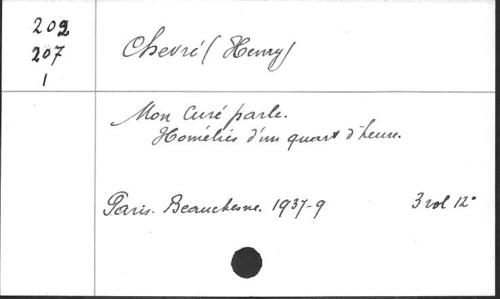 202
207
1
Chevré (Henry)
Mon Curé parle.
Homélies d'un quart d'heure.
Paris. Beauchesne. 1937-9 3 vol 12°